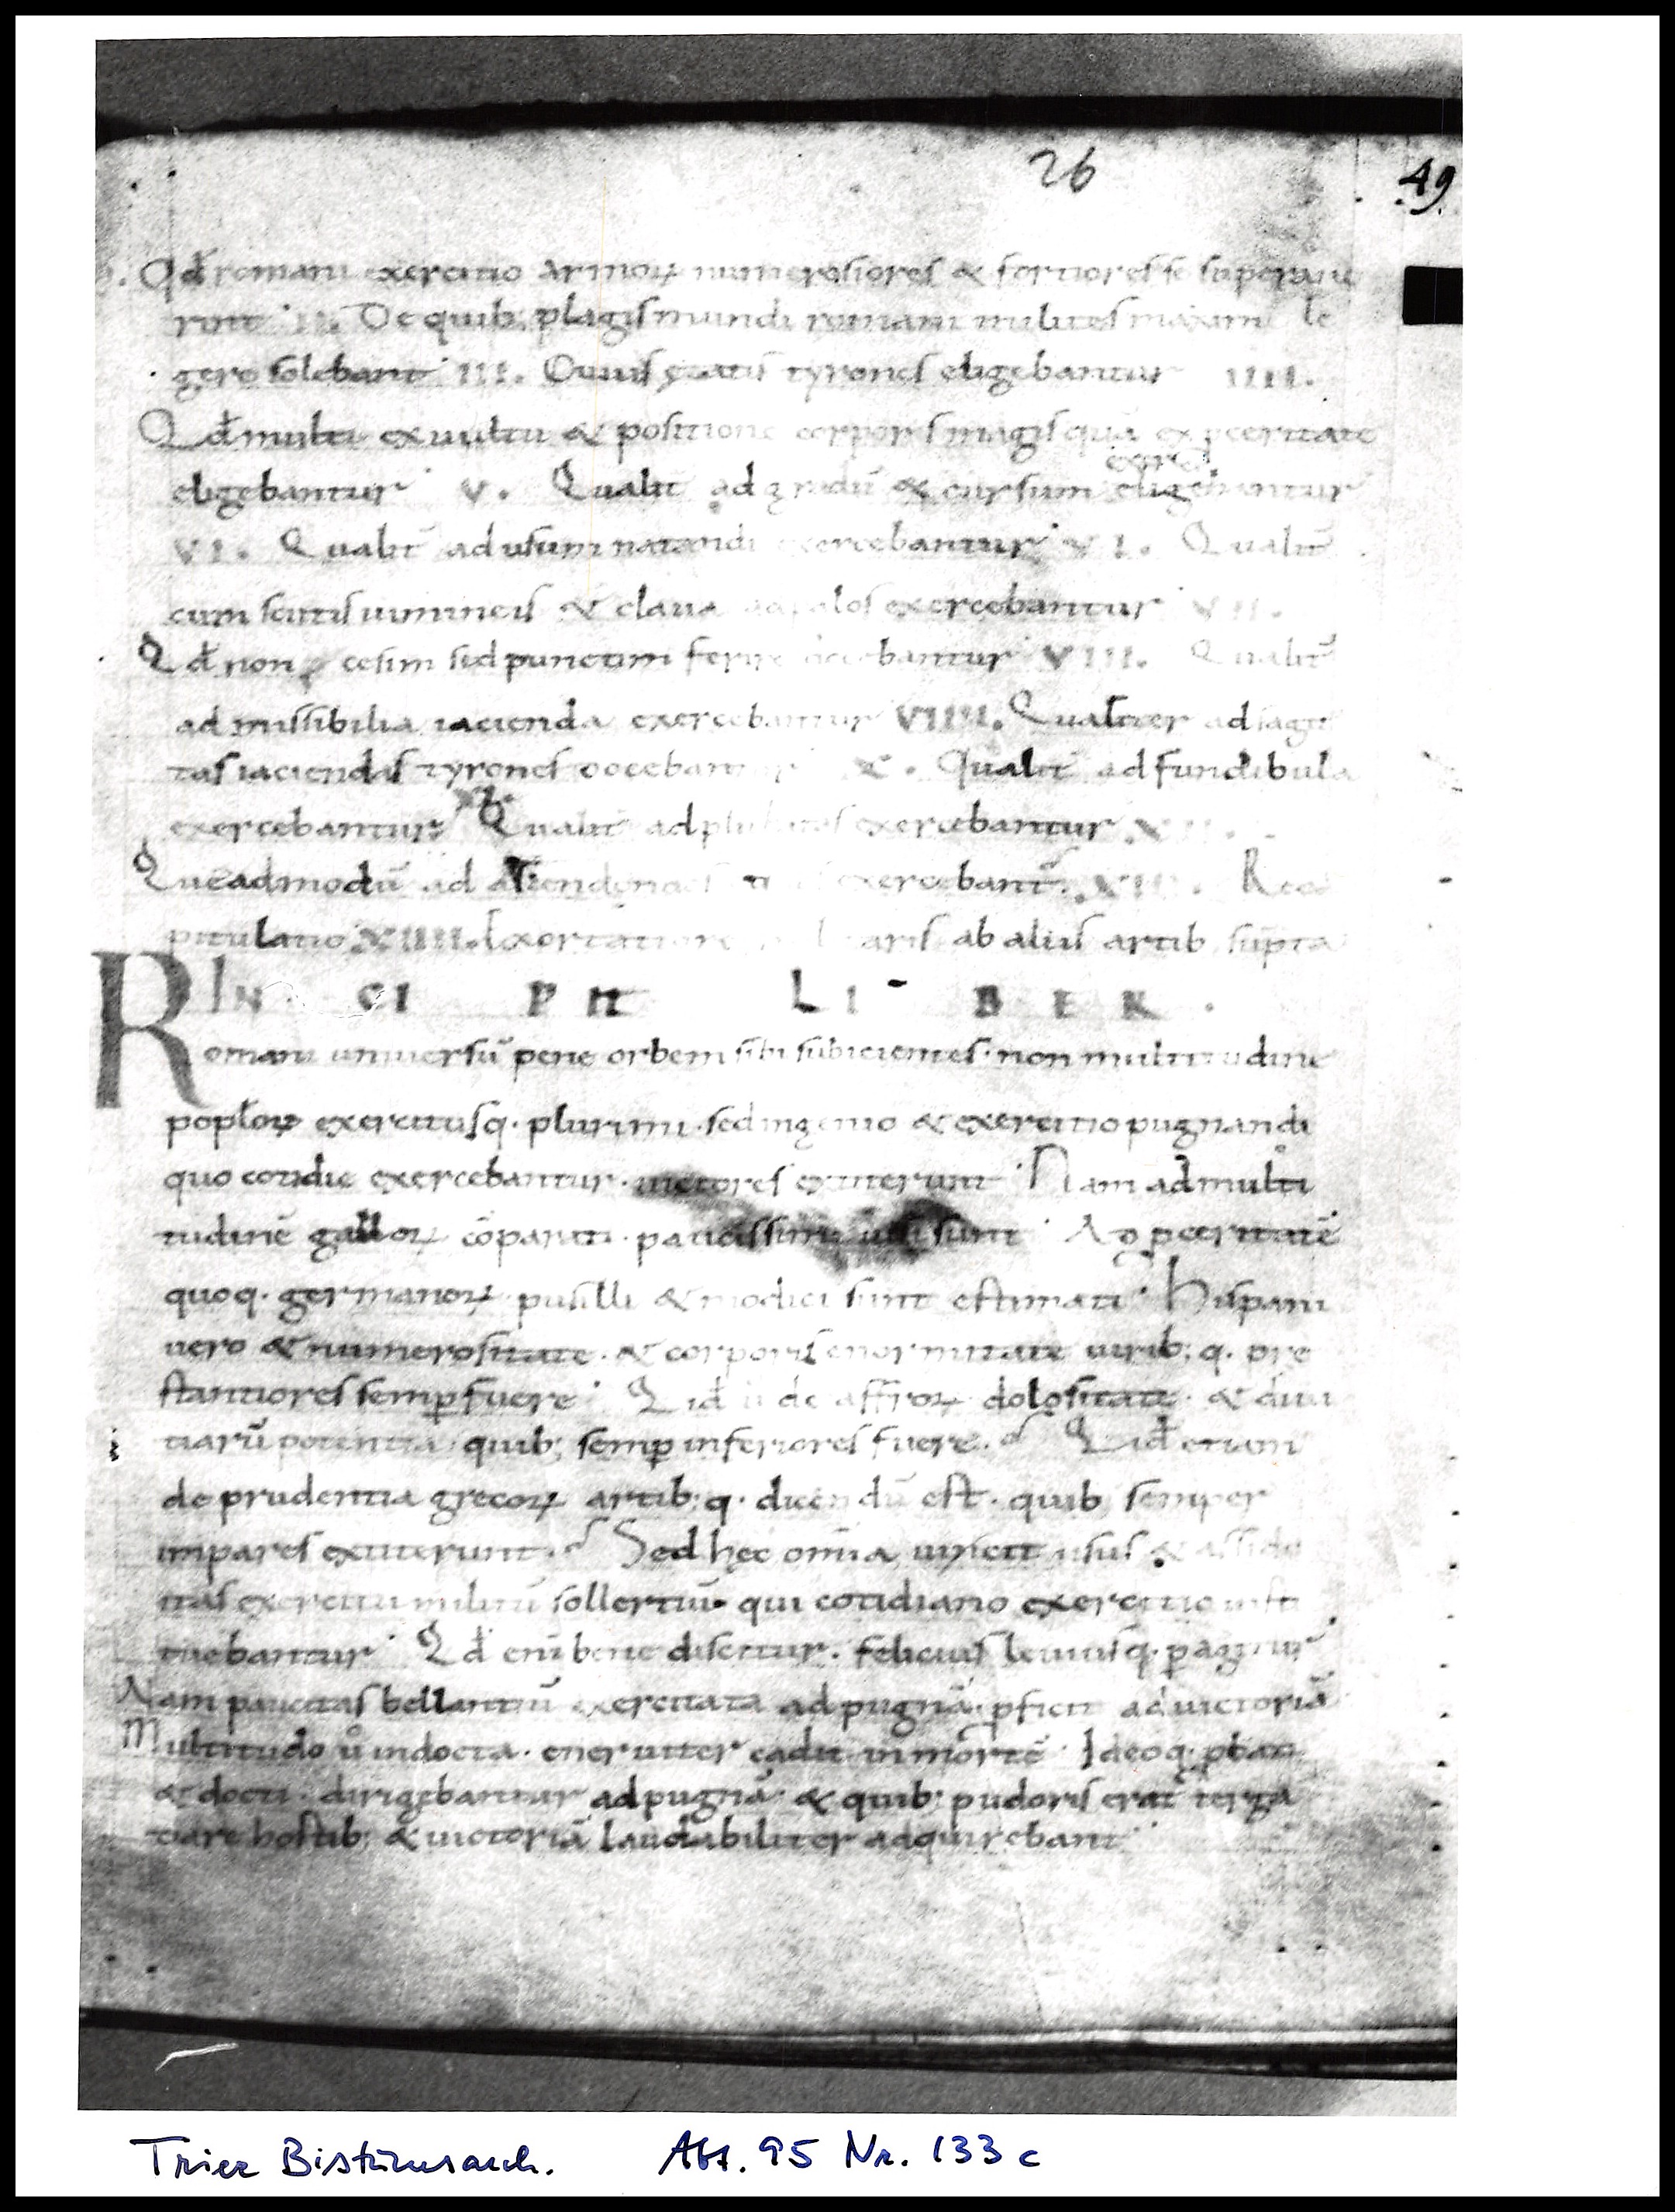 26
49
Qđ romani exercitio armoꝝ numerosiores & fortiores se superaue
runt II. De quib; plagis mundi romani milites maxime le
gere solebant III. Cuius ętatis tyrones eligebantur IIII.
Qđ multi ex uultu & positione corporis magis quā ex ꝓceritate
eligebantur V. Qualit̄ ad gradū & cursum eligebantur
VI. Qualit̄ ad usum natandi exercebantur VI. Qualit̄
cum scutis uimineis & claua ad palos exercebantur VII.
Qđ non cesim sed punctim ferire docebantur VIII. Qualit̄
ad missibilia iacienda exercebantur VIIII. Qualiter ad sagit
tas iaciendas tyrones docebantur X. Qualit̄ ad fundibula
exercebantur Qualit̄ ad exercebantur XII.
Quēadmodū ad exercebant̄ XIII. Reca
pitulatio XIIII. ab aliis artib; sūpta
INCIPIT LIBER.
Romani uniuersū pene orbem sibi subicientes. non multitudine
populoꝝ exercitusq. plurimi. sed ingenio & exercitio pugnandi
quo cotidie exercebantur. uictores extiterunt Nam ad multi
tudinē galloꝝ cōparati. paucissimi uisi sunt. Ad ꝓceritatē
quoq. germanoꝝ pusilli & modici sunt estimati. Hispani
uero & numerositate. & corporis enormitate uirib; q. pre
stantiores semꝑ fuere. Qid ū de affroꝝ dolositate. & diui
tiarū potentia quib; semꝑ inferiores fuere. Qid etiam
de prudentia grecoꝝ artib; q. dicendū est. quib; semper
impares extiterunt. Sed hęc om̄ia uincit usus & assidu
itas exercitii militū sollertiū qui cotidiano exercitio insti
tuebantur. Qđ eni bene discitur. felicius leuiusq. ꝑagitur
Nam paucitas bellantiū exercitata ad pugnā. ꝓficit ad uictoriā
Multitudo ů indocta. eneruiter cadit in mortē. Ideoq. ꝓbati
& docti. dirigebantur ad pugnā. & quib; pudoris erat terga
dare hostib; & uictoriā laudabiliter adquirebant
Trier Bistumsarch. Abt. 95 Nr. 133 c